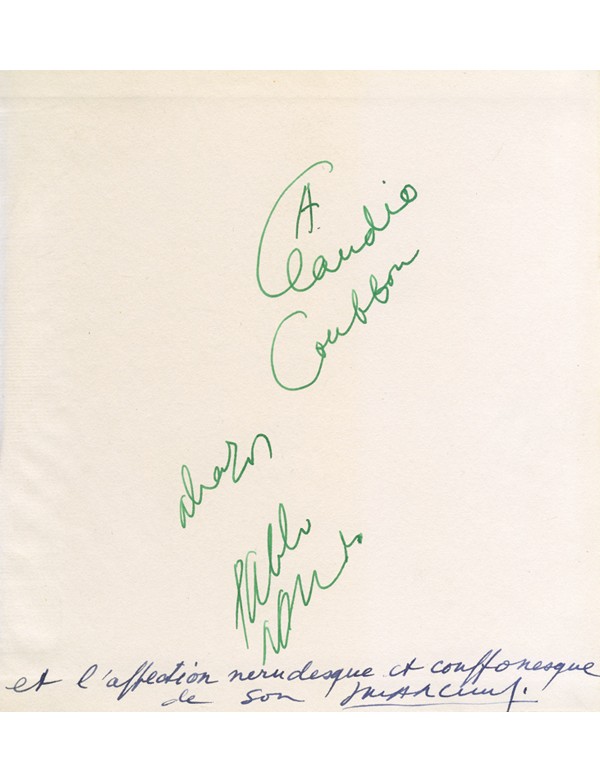 A
Claudio
Couffon
abrazos
Pablo
et l'affection nerudesque et couffonesque
de son